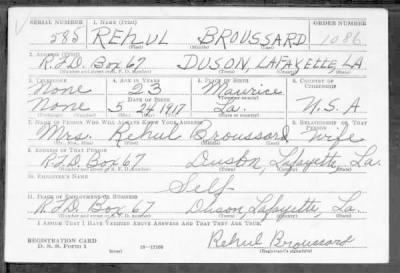 SERIAL NUMBER 1. NAME (Print) ORDER NUMBER
585 REHUL BROUSSARD 1086
(First) (Middle) (Last)
2. ADDRESS (Print)
R.F.D. Box 67 DUSON, LAFAYETTE, LA
(Number and street or R. F. D. number) (Town) (County) (State)
3. TELEPHONE 4. AGE IN YEARS 5. PLACE OF BIRTH 6. COUNTRY OF CITIZENSHIP
None 23 Maurice
DATE OF BIRTH (Town or county)
None 5 24 1917 La. U.S.A
(Mo.) (Day) (Yr.) (State or country)
7. NAME OF PERSON WHO WILL ALWAYS KNOW YOUR ADDRESS 8. RELATIONSHIP OF THAT PERSON
Mrs. Rehul Broussard, Wife
(Mr., Mrs., Miss) (First) (Middle) (Last)
9. ADDRESS OF THAT PERSON
R.F.D. Box 67 Duson, Lafayette, La.
(Number and street or R. F. D. number) (Town) (County) (State)
10. EMPLOYER'S NAME
Self
11. PLACE OF EMPLOYMENT OR BUSINESS
R.F.D. Box 67 Duson, Lafayette, La.
(Number and street or R. F. D. number) (Town) (County) (State)
I AFFIRM THAT I HAVE VERIFIED ABOVE ANSWERS AND THAT THEY ARE TRUE.
Rehul Broussard
REGISTRATION CARD
D. S. S. Form 1 (over) 16—17105